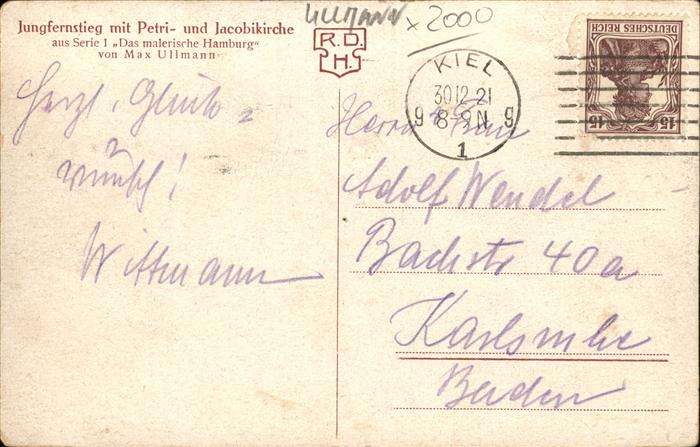 Jungfernstieg mit Petri- und Jacobikirche
aus Serie 1 „Das malerische Hamburg“
von Max Ullmann
ULLMANN x 2000
R. D.
H.
KIEL
30 12 21
9 8-9N 9
1
DEUTSCHES REICH
15 15
Herzl. Glück=
wünsch!
Wittmann
Herrn & Frau
Adolf Wendel
Bachstr 40a
Karlsruhe
Baden